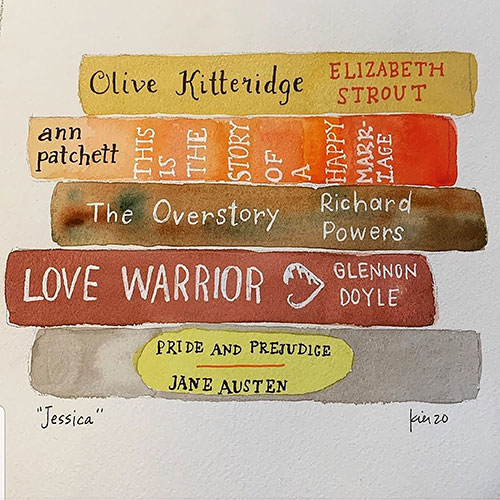 Olive Kitteridge
ELIZABETH
STROUT
ann
patchett
THIS
IS
THE
STORY
OF
A
HAPPY
MARR-
IAGE
The Overstory
Richard
Powers
LOVE WARRIOR
GLENNON
DOYLE
PRIDE AND PREJUDICE
JANE AUSTEN
"Jessica"